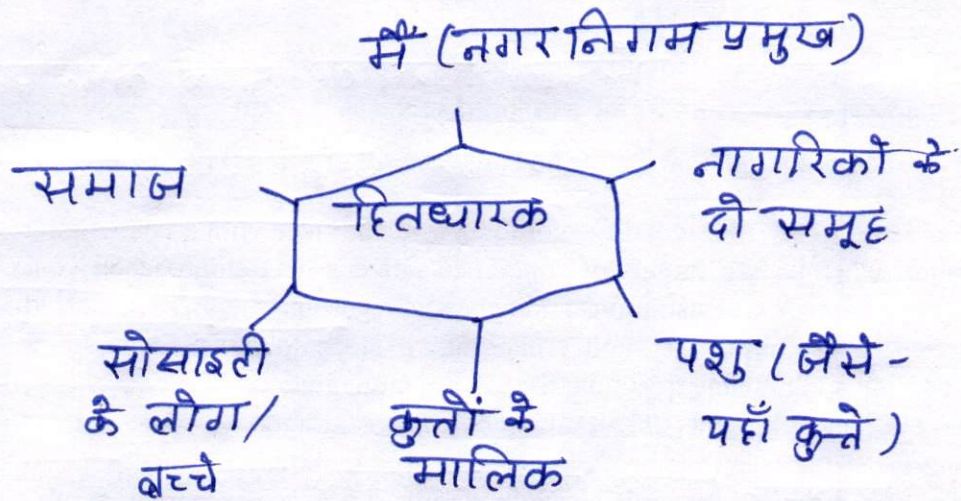 मैं (नगर निगम प्रमुख)
समाज
हितधारक
नागरिकों के
दो समूह
सोसाइटी
के लोग/
बच्चे
कुत्तों के
मालिक
पशु (जैसे-
यहाँ कुत्ते)